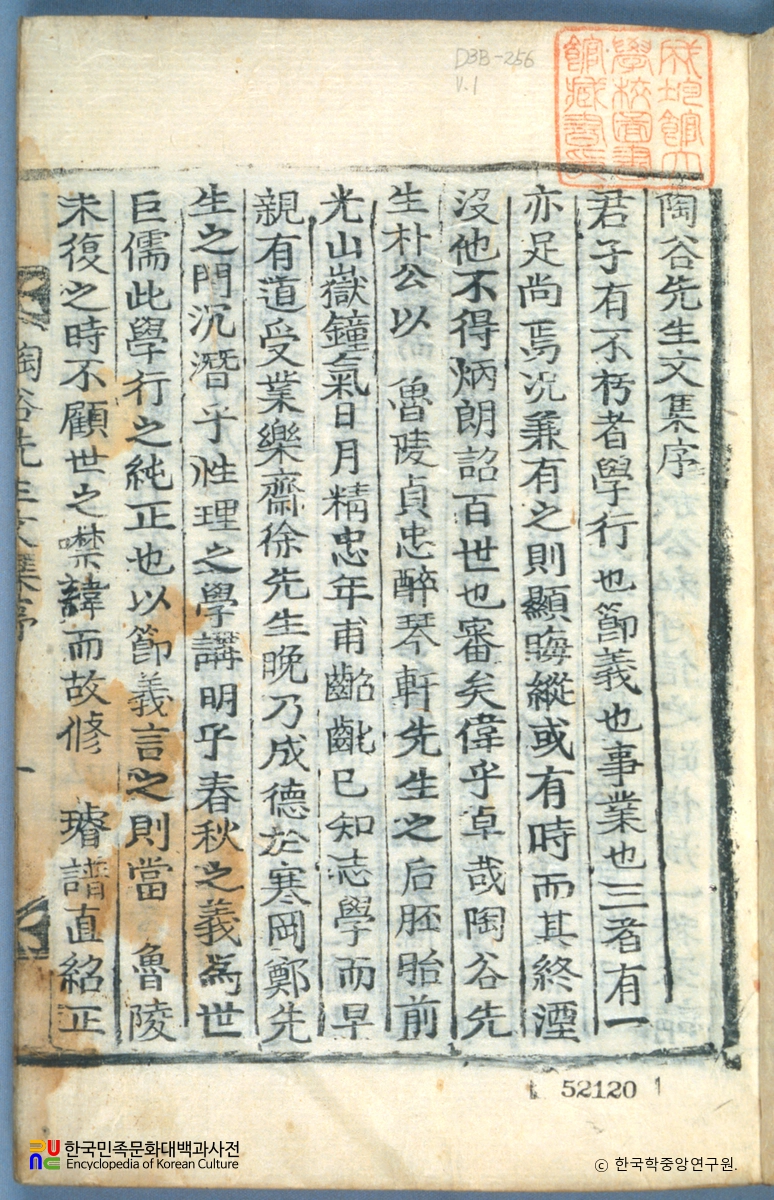 D3B-256
V.1
成均館大
學校圖書
館藏書印
陶谷先生文集序
君子有不朽者學行也節義也事業也三者有一
亦足尙焉况兼有之則顯晦縱或有時而其終湮
沒他不得炳朗詔百世也審矣偉乎卓哉陶谷先
生朴公以 魯陵貞忠醉琴軒先生之后胚胎前
光山嶽鐘氣日月精忠年甫齠齔已知志學而早
親有道受業樂齋徐先生晩乃成德於寒岡鄭先
生之門沉潛乎性理之學講明乎春秋之義爲世
巨儒此學行之純正也以節義言之則當 魯陵
未復之時不顧世之噤諱而故修 璿譜直紹正
陶谷先生文集序
一
52120
한국민족문화대백과사전
Encyclopedia of Korean Culture
© 한국학중앙연구원.